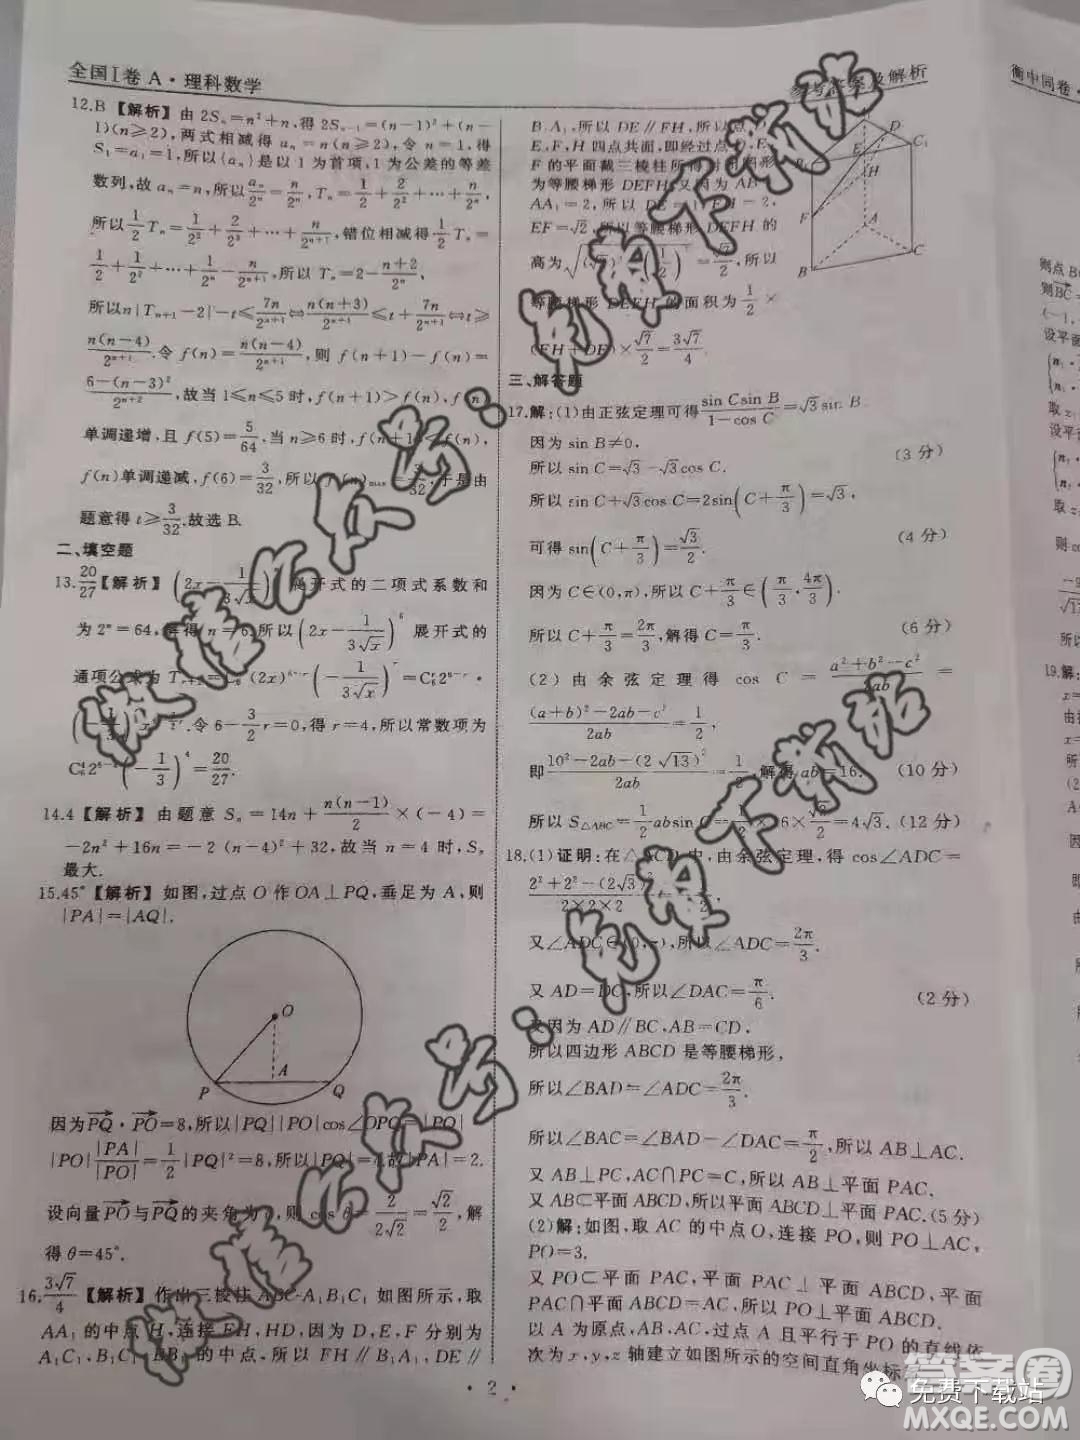 全国Ⅰ卷A·理科数学
参考答案及解析
12.B 【解析】由 2Sₙ=n²+n,得 2Sₙ₋₁=(n-1)²+(n-
1)(n≥2),两式相减得 aₙ=n(n≥2),令 n=1,得
S₁=a₁=1,所以{aₙ}是以 1 为首项,1 为公差的等差
数列,故 aₙ=n,所以 aₙ/2ⁿ=n/2ⁿ,Tₙ=1/2+2/2²+…+n/2ⁿ,
所以 1/2 Tₙ=1/2²+2/2³+…+n/2ⁿ⁺¹,错位相减得 1/2 Tₙ=
1/2+1/2²+…+1/2ⁿ-n/2ⁿ⁺¹,所以 Tₙ=2-(n+2)/2ⁿ,
所以 n|Tₙ₊₁-2|-t≤7n/2ⁿ⁺¹⇔n(n+3)/2ⁿ⁺¹≤t+7n/2ⁿ⁺¹⇔t≥
n(n-4)/2ⁿ⁺¹.令 f(n)=n(n-4)/2ⁿ⁺¹,则 f(n+1)-f(n)=
(6-(n-3)²)/2ⁿ⁺²,故当 1≤n≤5 时,f(n+1)>f(n),f(n)
单调递增,且 f(5)=5/64,当 n≥6 时,f(n+1)<f(n),
f(n)单调递减,f(6)=3/32,所以 f(n)max=3/32,于是由
题意得 t≥3/32.故选 B.
二、填空题
13.20/27【解析】(2x-1/(3√x))ⁿ展开式的二项式系数和
为 2ⁿ=64,解得 n=6,所以(2x-1/(3√x))⁶展开式的
通项公式为 (2x)⁶⁻ʳ(-1/(3√x))ʳ=C₆ʳ2⁶⁻ʳ·
令 6-3/2 r=0,得 r=4,所以常数项为
C₆⁴2⁶⁻⁴(-1/3)⁴=20/27.
14.4【解析】由题意 Sₙ=14n+n(n-1)/2×(-4)=
-2n²+16n=-2(n-4)²+32,故当 n=4 时,Sₙ
最大.
15.45°【解析】如图,过点 O 作 OA⊥PQ,垂足为 A,则
|PA|=|AQ|.
O
P A Q
因为PQ·PO=8,所以|PQ||PO|cos∠OPQ=|PQ|
|PO||PA|/|PO|=1/2|PQ|²=8,所以|PQ|=4,故|PA|=2.
设向量PO与PQ的夹角为θ,则 cos θ=2/(2√2)=√2/2,解
得 θ=45°.
16.3√7/4【解析】作出三棱柱 ABC-A₁B₁C₁ 如图所示,取
AA₁ 的中点 H,连接 FH,HD,因为 D,E,F 分别为
A₁C₁,B₁C₁,BB₁ 的中点,所以 FH∥B₁A₁,DE∥
B₁A₁,所以 DE∥FH,所以点 D,
E,F,H 四点共面,即经过点 D,E,
F 的平面截三棱柱所得截面图形
为等腰梯形 DEFH,又因为 AB=
AA₁=2,所以 DE=1,FH=2,
EF=√2,所以等腰梯形 DEFH 的
高为√((√2)²-(1/2)²)=√7/2,所以
等腰梯形 DEFH 的面积为 1/2×
(FH+DE)×√7/2=3√7/4.
D
C₁
E
H
F
A
B
C
三、解答题
17.解:(1)由正弦定理可得 sin Csin B/(1-cos C)=√3sin B.
因为 sin B≠0,
所以 sin C=√3-√3cos C.
(3 分)
所以 sin C+√3cos C=2sin(C+π/3)=√3,
可得 sin(C+π/3)=√3/2.
(4 分)
因为 C∈(0,π),所以 C+π/3∈(π/3,4π/3),
所以 C+π/3=2π/3,解得 C=π/3.
(6 分)
(2)由余弦定理得 cos C=(a²+b²-c²)/2ab=
((a+b)²-2ab-c²)/2ab=1/2,
即(10²-2ab-(2√13)²)/2ab=1/2,解得 ab=16.
(10 分)
所以 S△ABC=1/2 absin C=1/2×16×√3/2=4√3.(12 分)
18.(1)证明:在△ACD 中,由余弦定理,得 cos∠ADC=
(2²+2²-(2√3)²)/(2×2×2)
又∠ADC∈(0,π),所以∠ADC=2π/3.
又 AD=DC,所以∠DAC=π/6.
(2 分)
又因为 AD∥BC,AB=CD,
所以四边形 ABCD 是等腰梯形,
所以∠BAD=∠ADC=2π/3.
所以∠BAC=∠BAD-∠DAC=π/2,所以 AB⊥AC.
又 AB⊥PC,AC∩PC=C,所以 AB⊥平面 PAC.
又 AB⊂平面 ABCD,所以平面 ABCD⊥平面 PAC.(5 分)
(2)解:如图,取 AC 的中点 O,连接 PO,则 PO⊥AC,
PO=3.
又 PO⊂平面 PAC,平面 PAC⊥平面 ABCD,平面
PAC∩平面 ABCD=AC,所以 PO⊥平面 ABCD.
以 A 为原点,AB,AC,过点 A 且平行于 PO 的直线依
次为 x,y,z 轴建立如图所示的空间直角坐标
·2·
衡中同卷·
则点B
则BC=
(-1,
设平面
取 z
设平面
取 z
则 co
所以
19.解:
x=
由
x=
所
(2
答案圈
免费下载站
MXQE.COM